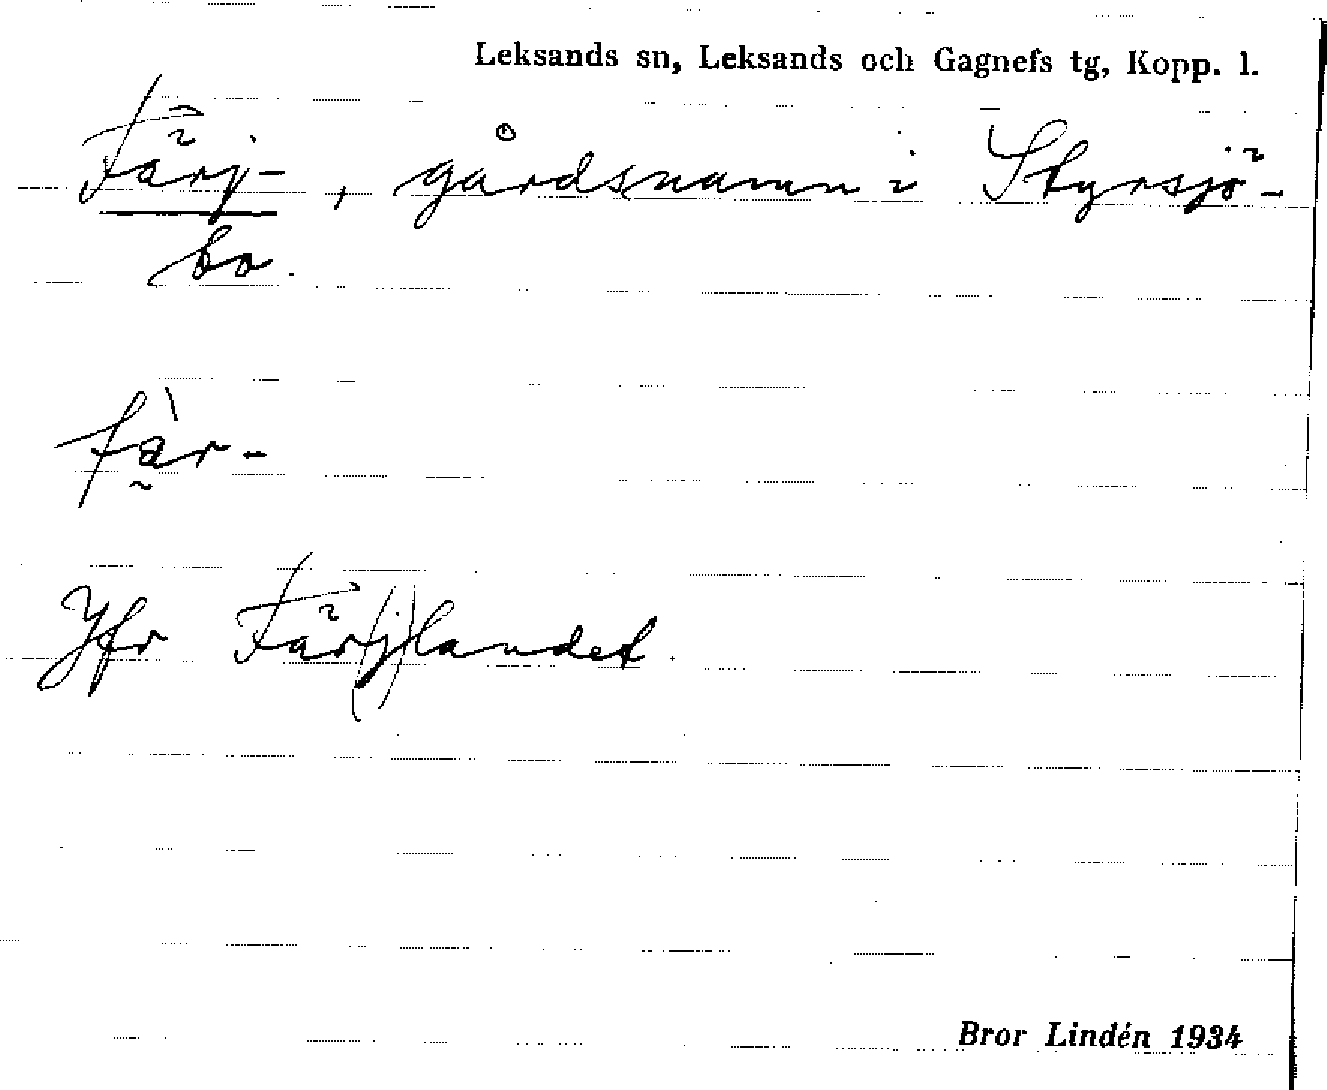 Leksands sn, Leksands och Gagnefs tg, Kopp. l.
Färj-, gårdsnamn i Styrsjö-
bo.
fà̰r-
Jfr Fär(j)landet
Bror Lindén 1934